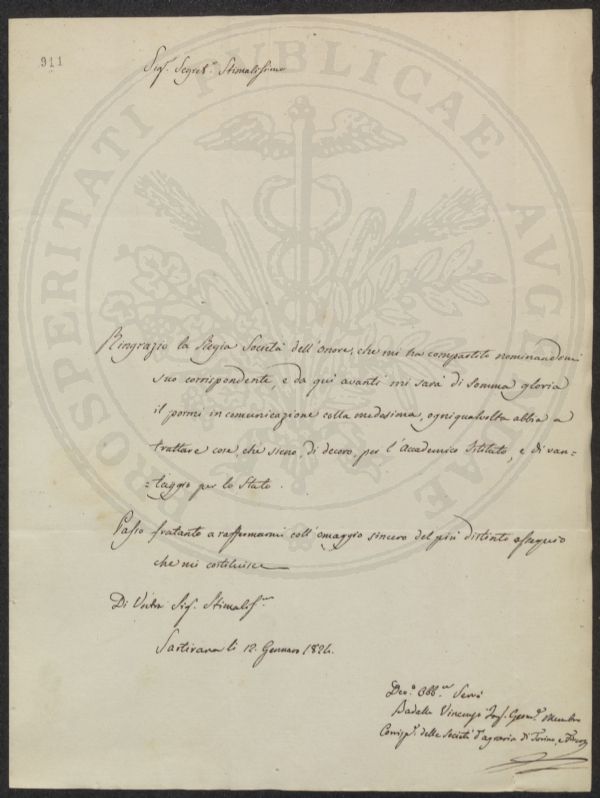 911
Sig.r Segret.o Stimatissimo
PROSPERITATI PUBLICAE AUGENDAE
Ringrazio la Regia Società dell'onore, che mi ha compartito nominandomi
suo corrispondente, e da qui avanti mi sarà di somma gloria
il pormi in comunicazione colla medesima, ogniqualvolta abbia a
trattare cose, che sieno, di decoro, per l'Accademico Istituto, e di van=
=taggio per lo Stato.
Passo frattanto a raffermarmi coll'omaggio sincero del più distinto ossequio
che mi costituisce
Di Vostra Sig. Stimatis.ma
Sartirana li 12. Gennaro 1824.
Dev.o Obb.mo Servo
Badalla Vincenzo Membro
Corrisp.e della Società d'agraria di Torino, e